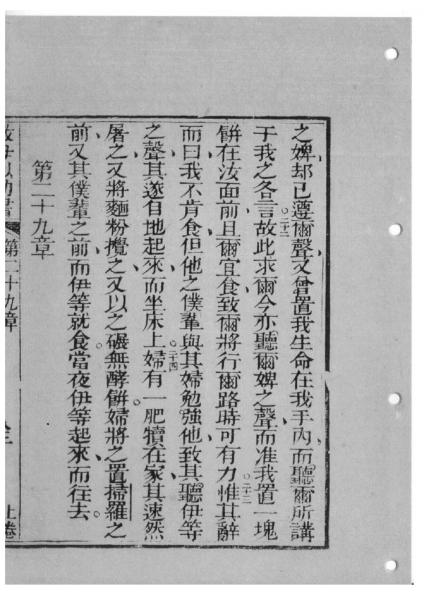 之婢却已遵爾聲又曾置我生命在我手內而聽爾所講
于我之各言。○二十二故此求爾今亦聽爾婢之聲而准我置一塊
餅在汝面前且爾宜食致爾將行爾路時可有力。○二十三惟其辭
而曰我不肯食但他之僕輩與其婦勉強他致其聽伊等
之聲其遂自地起來而坐床上。○二十四婦有一肥犢在家其速然
屠之又將麵粉攪之又以之碾無酵餅。婦將之置掃羅之
前又其僕輩之前而伊等就食。當夜伊等起來而往去。
第二十九章
第二十九章
上卷